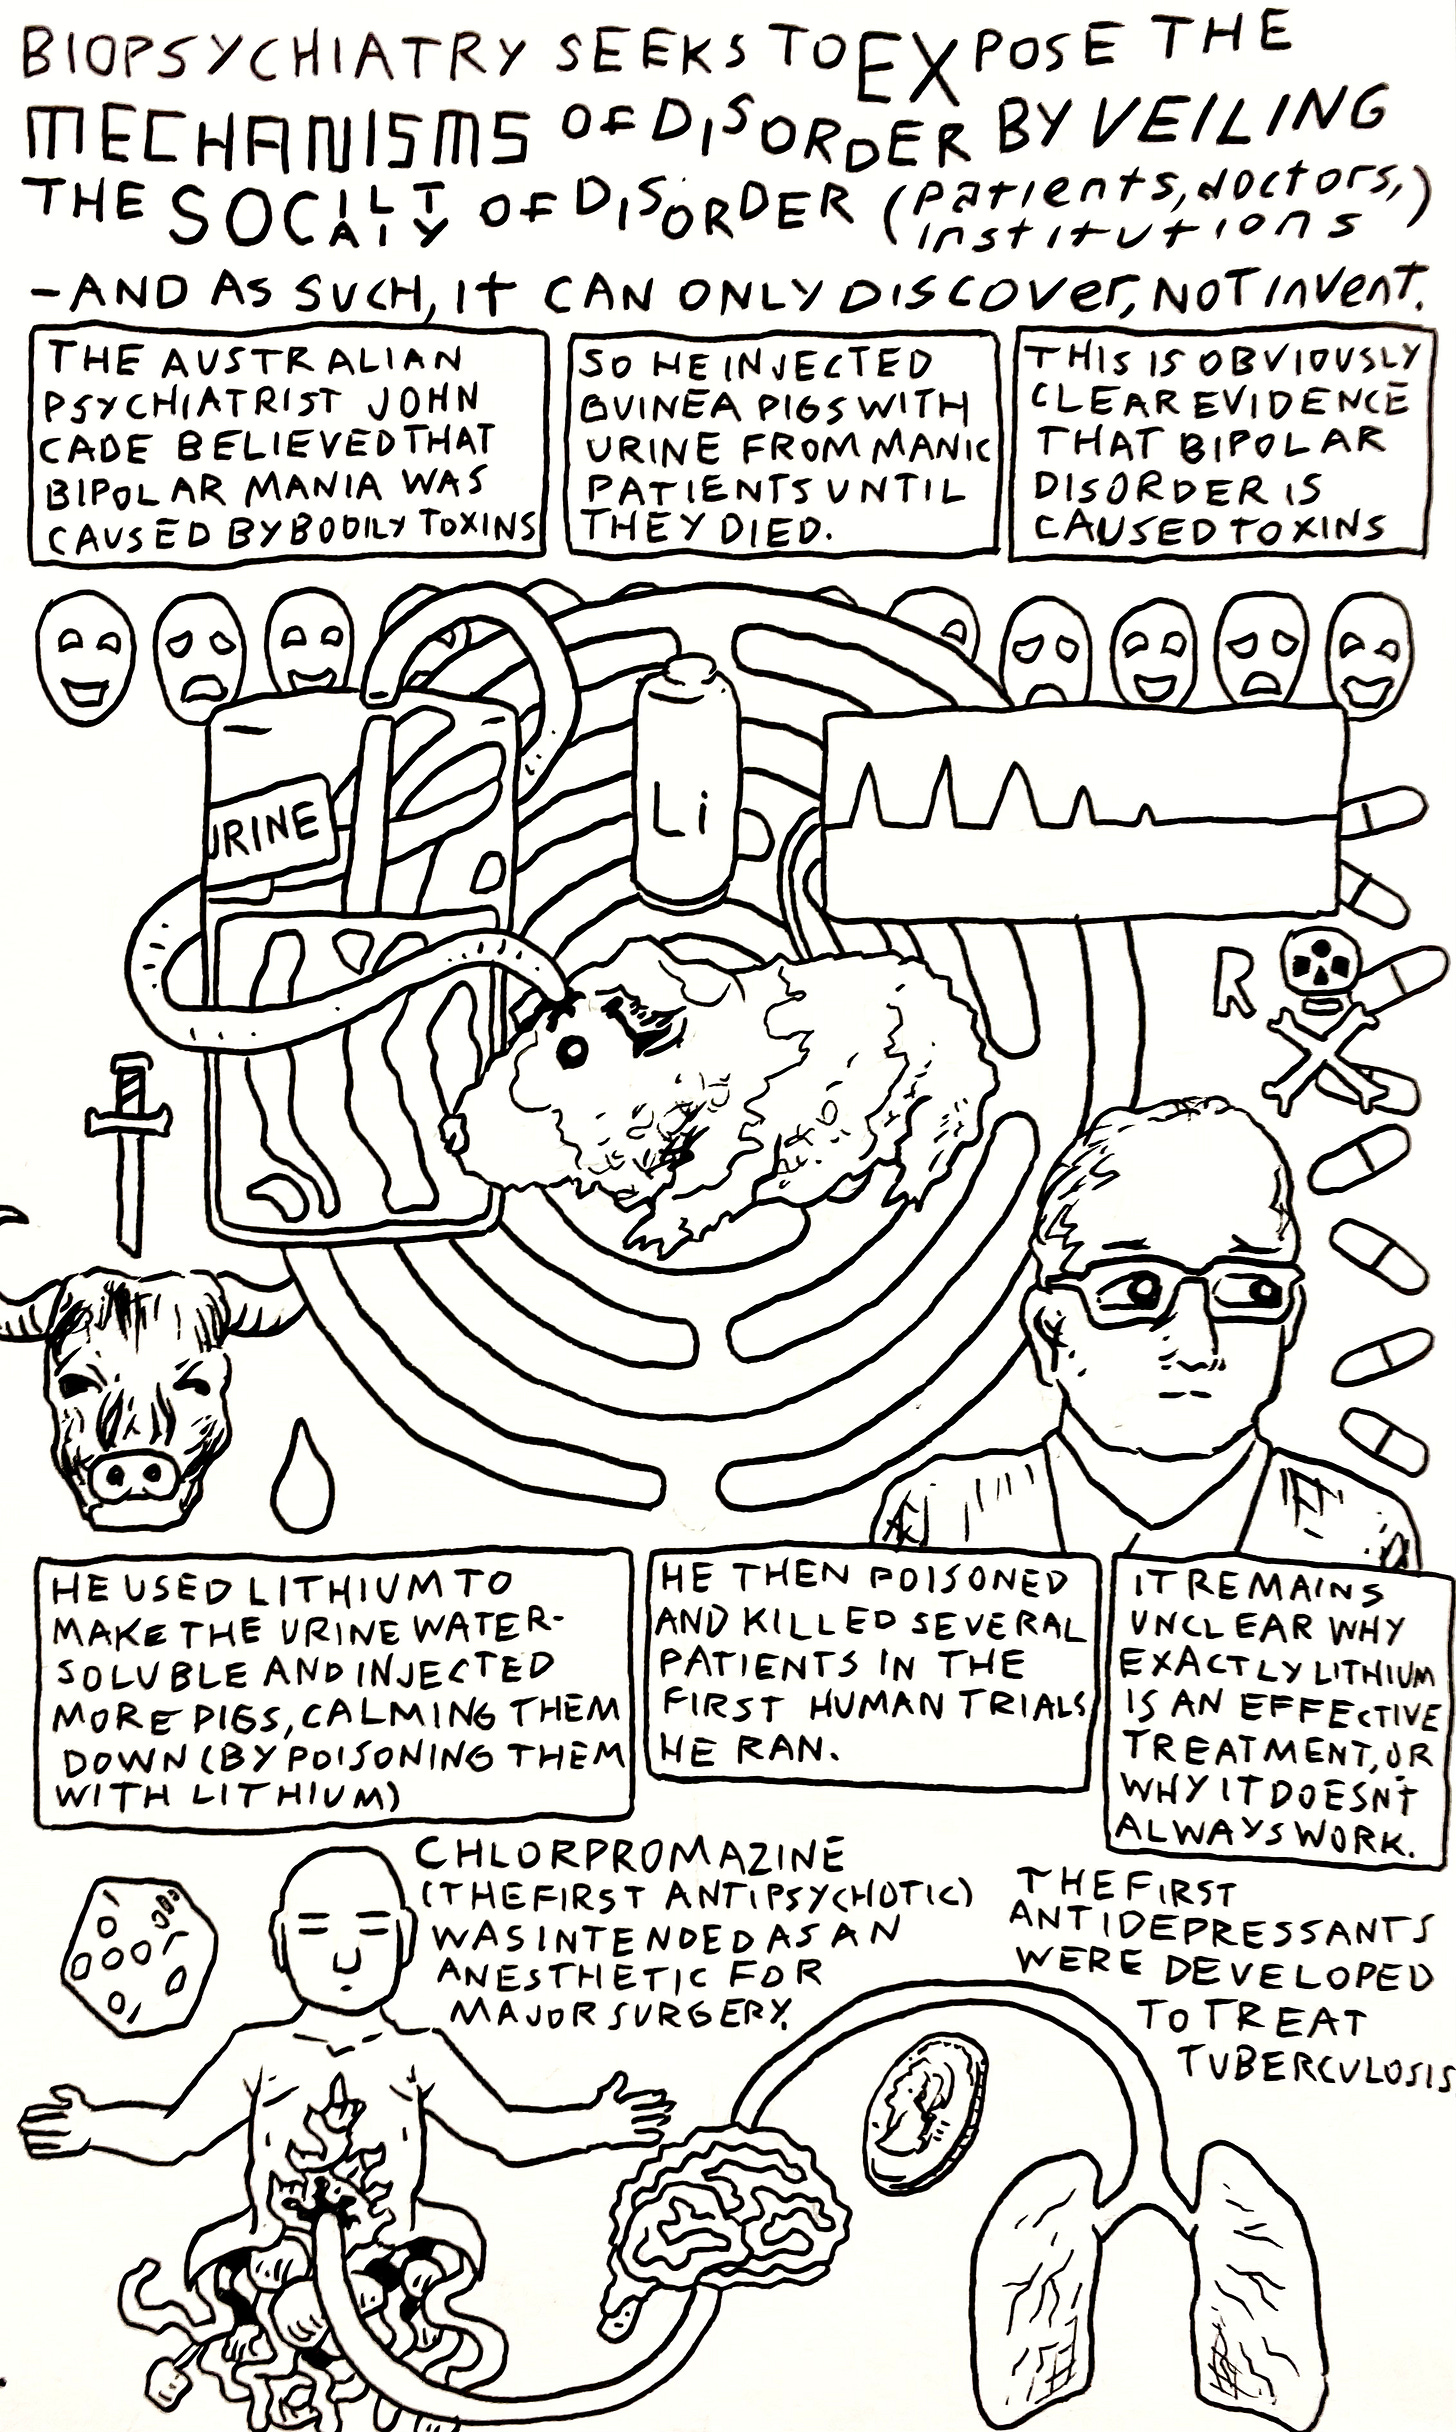 BIOPSYCHIATRY SEEKS TO EXPOSE THE
MECHANISMS OF DISORDER BY VEILING
THE SOCIALITY OF DISORDER (patients, doctors,
institutions)
-AND AS SUCH, IT CAN ONLY DISCOVER, NOT INVENT.
THE AUSTRALIAN
PSYCHIATRIST JOHN
CADE BELIEVED THAT
BIPOLAR MANIA WAS
CAUSED BY BODILY TOXINS
SO HE INJECTED
GUINEA PIGS WITH
URINE FROM MANIC
PATIENTS UNTIL
THEY DIED.
THIS IS OBVIOUSLY
CLEAR EVIDENCE
THAT BIPOLAR
DISORDER IS
CAUSED TOXINS
URINE
Li
R
HE USED LITHIUM TO
MAKE THE URINE WATER-
SOLUBLE AND INJECTED
MORE PIGS, CALMING THEM
DOWN (BY POISONING THEM
WITH LITHIUM)
HE THEN POISONED
AND KILLED SEVERAL
PATIENTS IN THE
FIRST HUMAN TRIALS
HE RAN.
IT REMAINS
UNCLEAR WHY
EXACTLY LITHIUM
IS AN EFFECTIVE
TREATMENT, OR
WHY IT DOESN'T
ALWAYS WORK.
CHLORPROMAZINE
(THE FIRST ANTIPSYCHOTIC)
WAS INTENDED AS AN
ANESTHETIC FOR
MAJOR SURGERY.
THE FIRST
ANTIDEPRESSANTS
WERE DEVELOPED
TO TREAT
TUBERCULOSIS